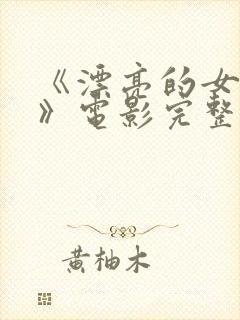 《漂亮的女
》電影完整
黄柚木